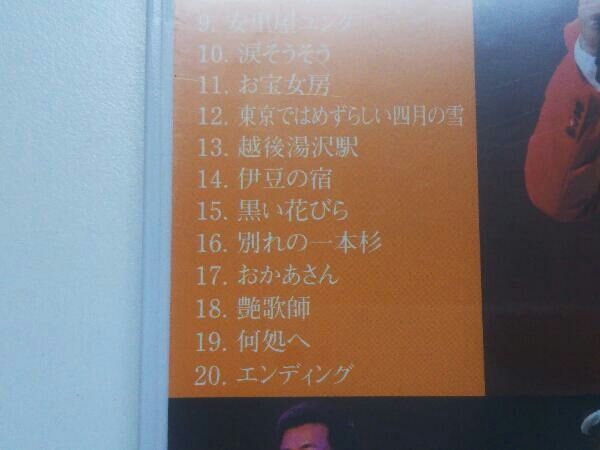 10. 涙そうそう
11. お宝女房
12. 東京ではめずらしい四月の雪
13. 越後湯沢駅
14. 伊豆の宿
15. 黒い花びら
16. 別れの一本杉
17. おかあさん
18. 艶歌師
19. 何処へ
20. エンディング